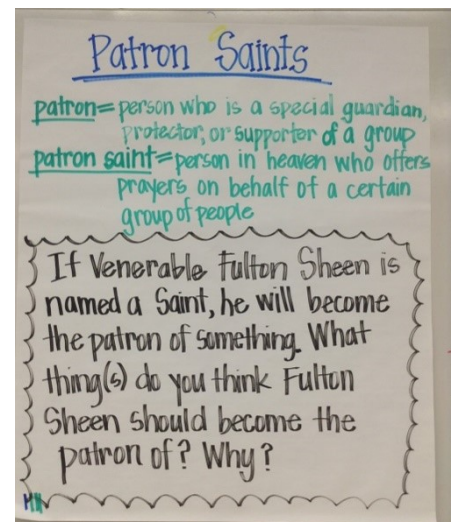 Patron Saints
patron=person who is a special guardian,
protector, or supporter of a group
patron saint=person in heaven who offers
prayers on behalf of a certain
group of people
If Venerable Fulton Sheen is
named a Saint, he will become
the patron of something. What
thing(s) do you think Fulton
Sheen should become the
patron of? Why?